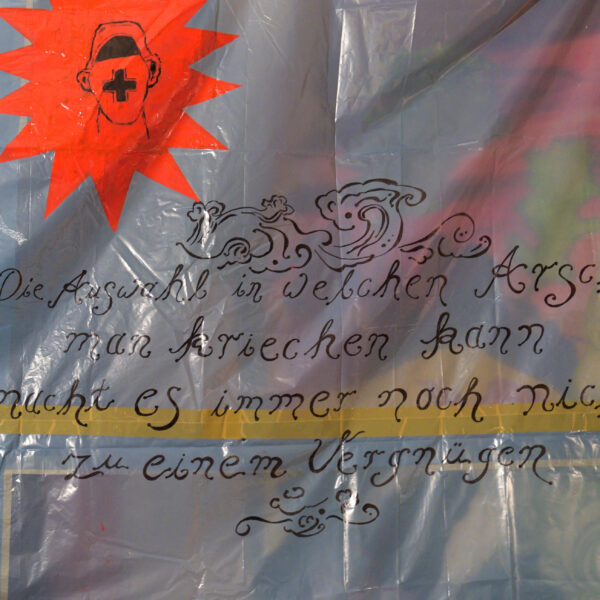 Die Auswahl in welchen Arsc
man kriechen kann
macht es immer noch nic
zu einem Vergnügen